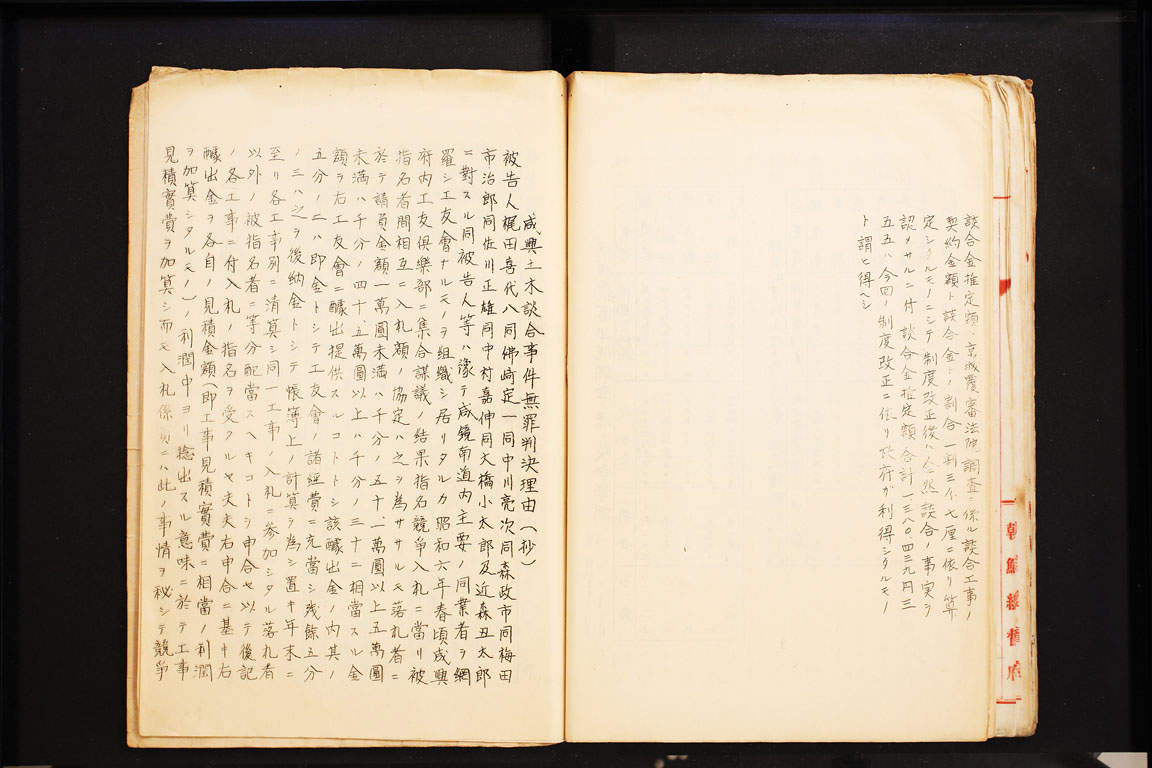 談合金推定額ハ京城覆審法院調査ニ係ル談合工事ノ
契約金額ト談合金トノ割合一割三分七厘ニ依リ算
定シタルモノニシテ制度改正後ハ全然談合ノ事実ヲ
認メサルニ付談合金推定額合計一三八〇、四三九円三
五五ハ今回ノ制度改正ニ依リ政府ガ利得シタルモノ
ト謂ヒ得ヘシ
朝鮮總督府
咸興土木談合事件無罪判決理由(抄)
被告人梶田喜代八同佛崎定一同中川亮次同森政市同梅田
市治郎同佐川正雄同中村嘉伸同大橋小太郎及近森丑太郎
ニ對スル同被告人等ハ豫テ咸鏡南道内主要ノ同業者ヲ網
羅シ工友會ナルモノヲ組織シ居リタルカ昭和六年春頃咸興
府内工友倶樂部ニ集合謀議ノ結果指名競爭入札ニ當リ被
指名者間相互ニ入札額ノ協定ハ之ヲ為サルモ落札者ニ
於テ請負金額一萬圓未満ハ千分ノ五十、一萬圓以上五萬圓
未満ハ千分ノ四十五萬圓以上ハ千分ノ三十ニ相當スル金
額ヲ右工友會ニ醵出提供スルコトトシ該醵出金ノ内其ノ
五分ノ二ハ即金トシテ工友會ノ諸經費ニ充當シ残餘五分
ノ三ハ之ヲ後納金トシテ帳簿上ノ計算ヲ為シ置キ年末ニ
至リ各工事別ニ清算シ同一工事ノ入札ニ參加シタル落札者
以外ノ被指名者ニ等分配當スヘキコトヲ申合セ以テ後記
ノ各工事ニ付入札ノ指名ヲ受クルヤ夫夫右申合ニ基キ右
醵出金ヲ各自ノ見積金額(即工事見積實費ニ相當ノ利潤
ヲ加算シタルモノ)ノ利潤中ヨリ捻出スル意味ニ於テ工事
見積實費ヲ加算シ而モ入札係員ニハ此ノ事情ヲ秘シテ競爭